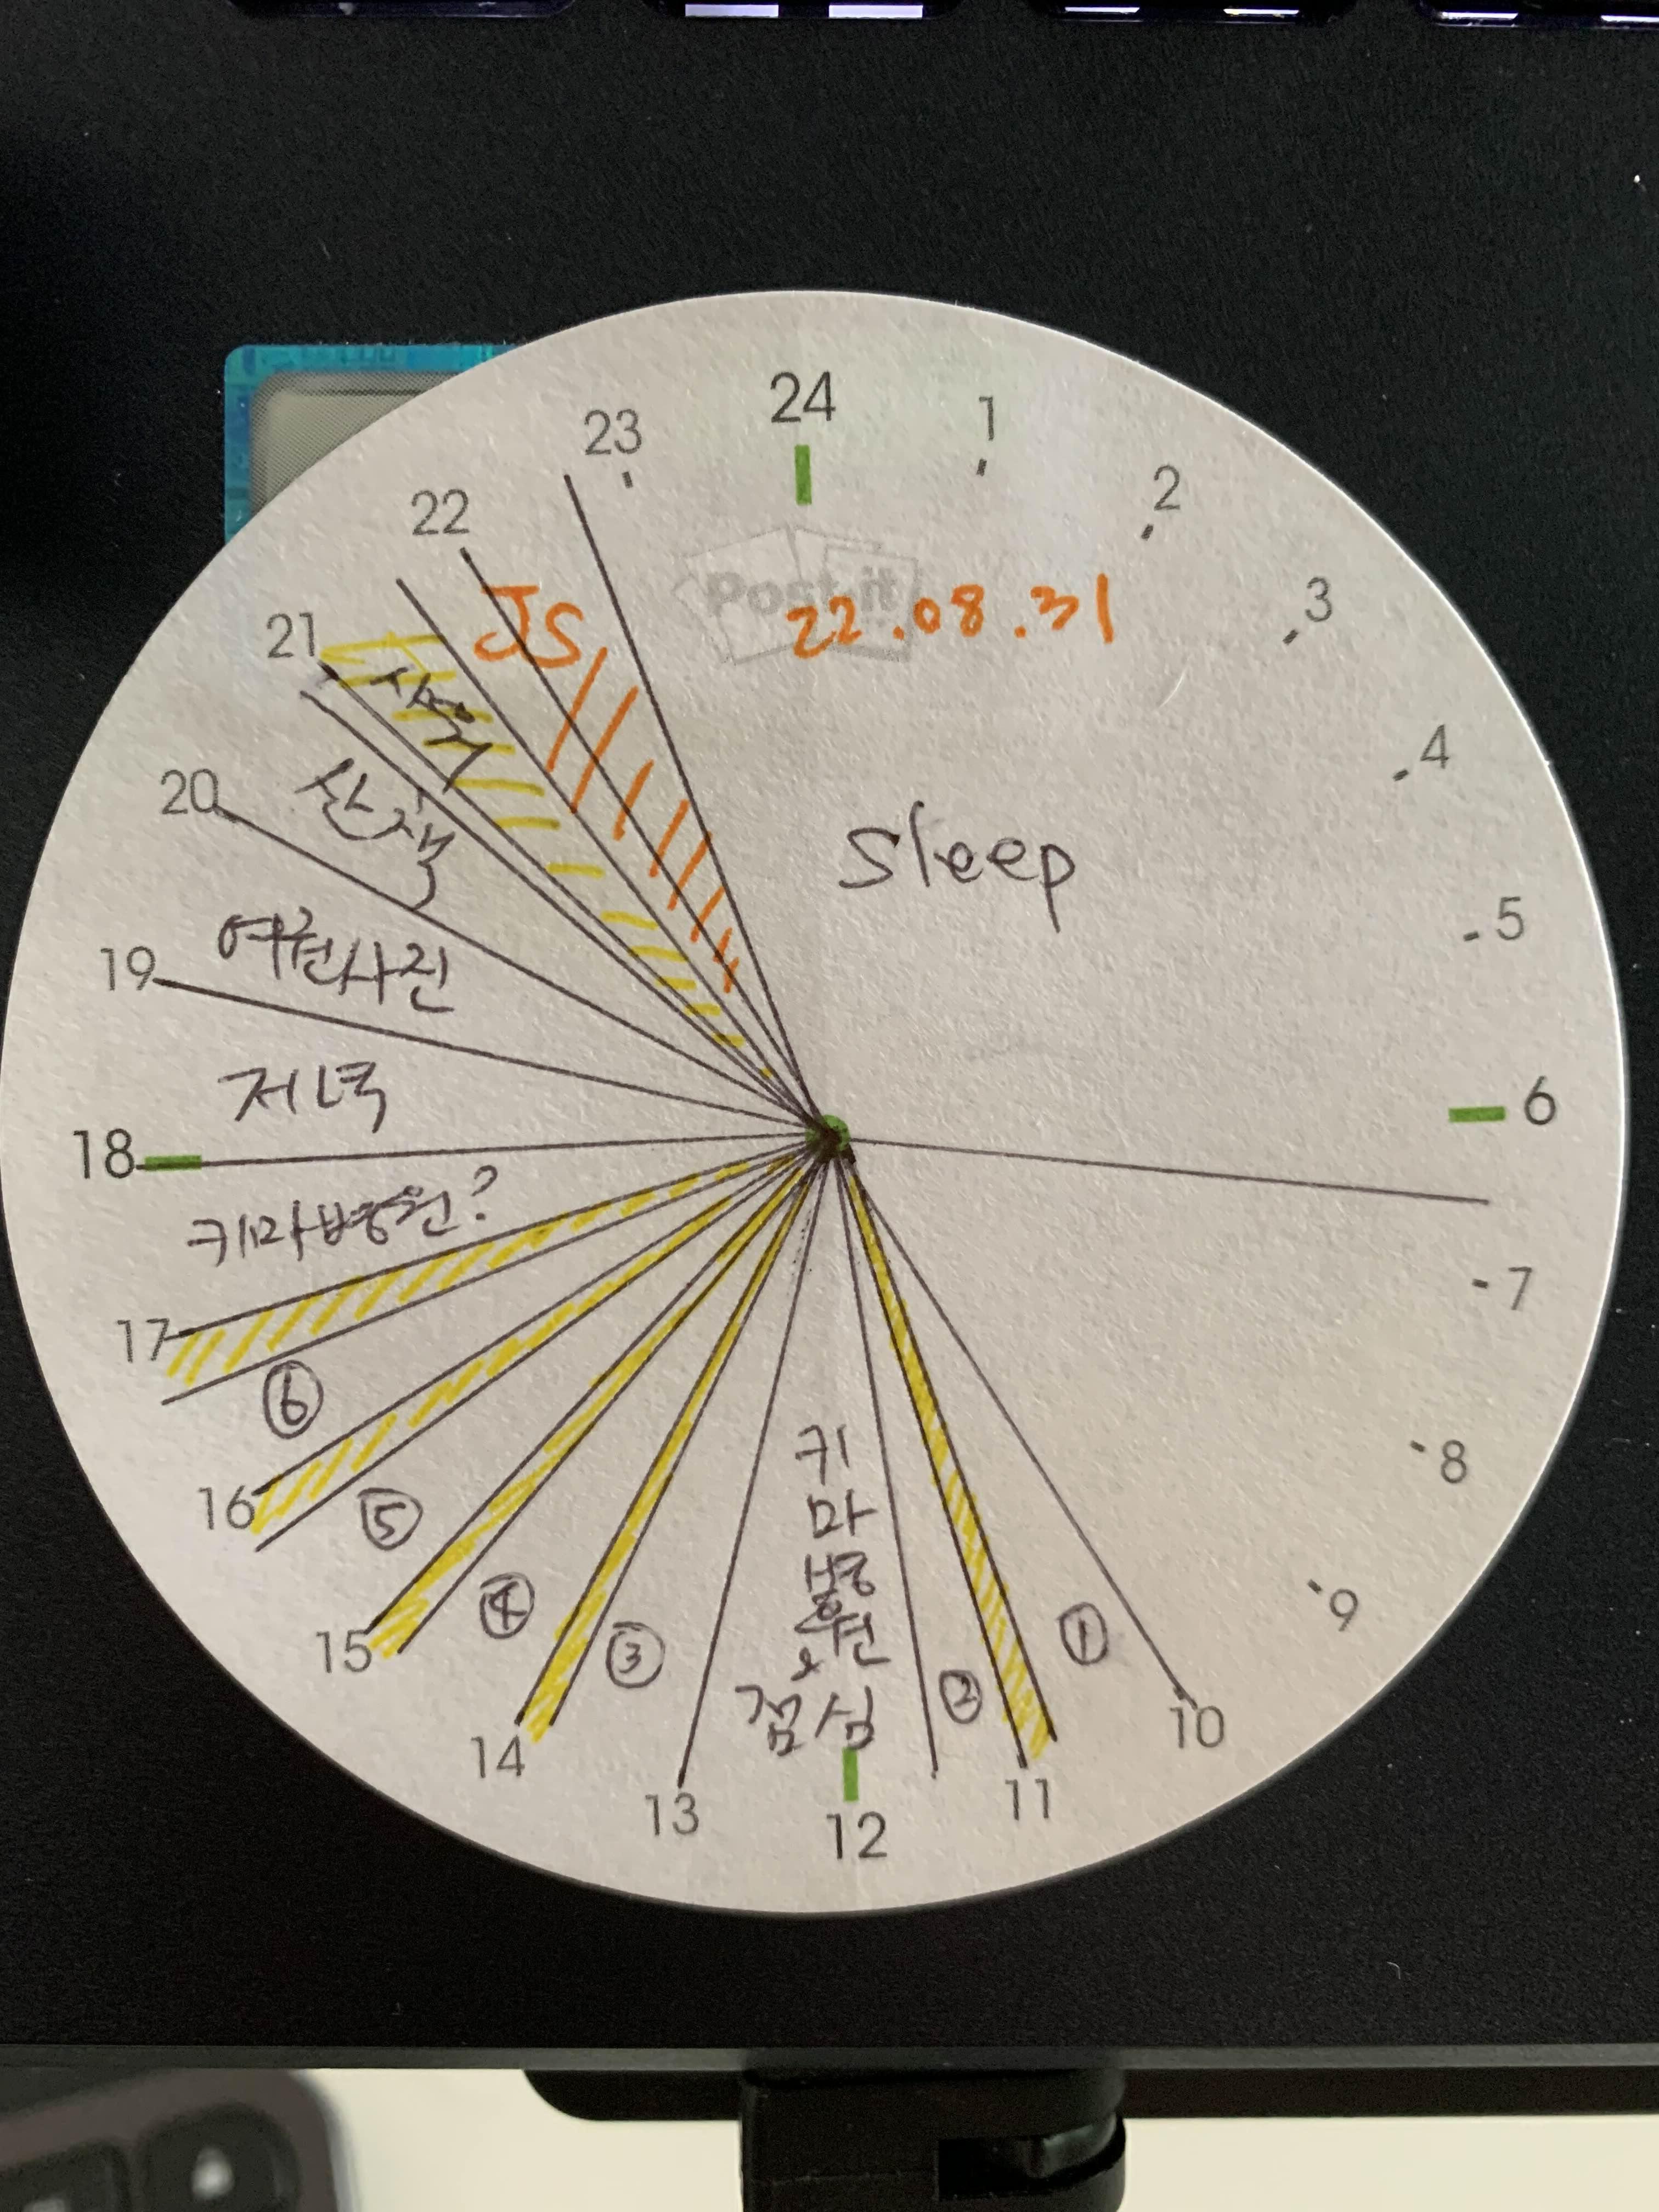 24
1
2
3
4
5
6
7
8
9
10
11
12
13
14
15
16
17
18
19
20
21
22
23
Post-it
22.08.31
JS
Sleep
샤워
산책
여권사진
저녁
키마병원?
⑥
⑤
④
③
키
마
병
원
&
점심
②
①